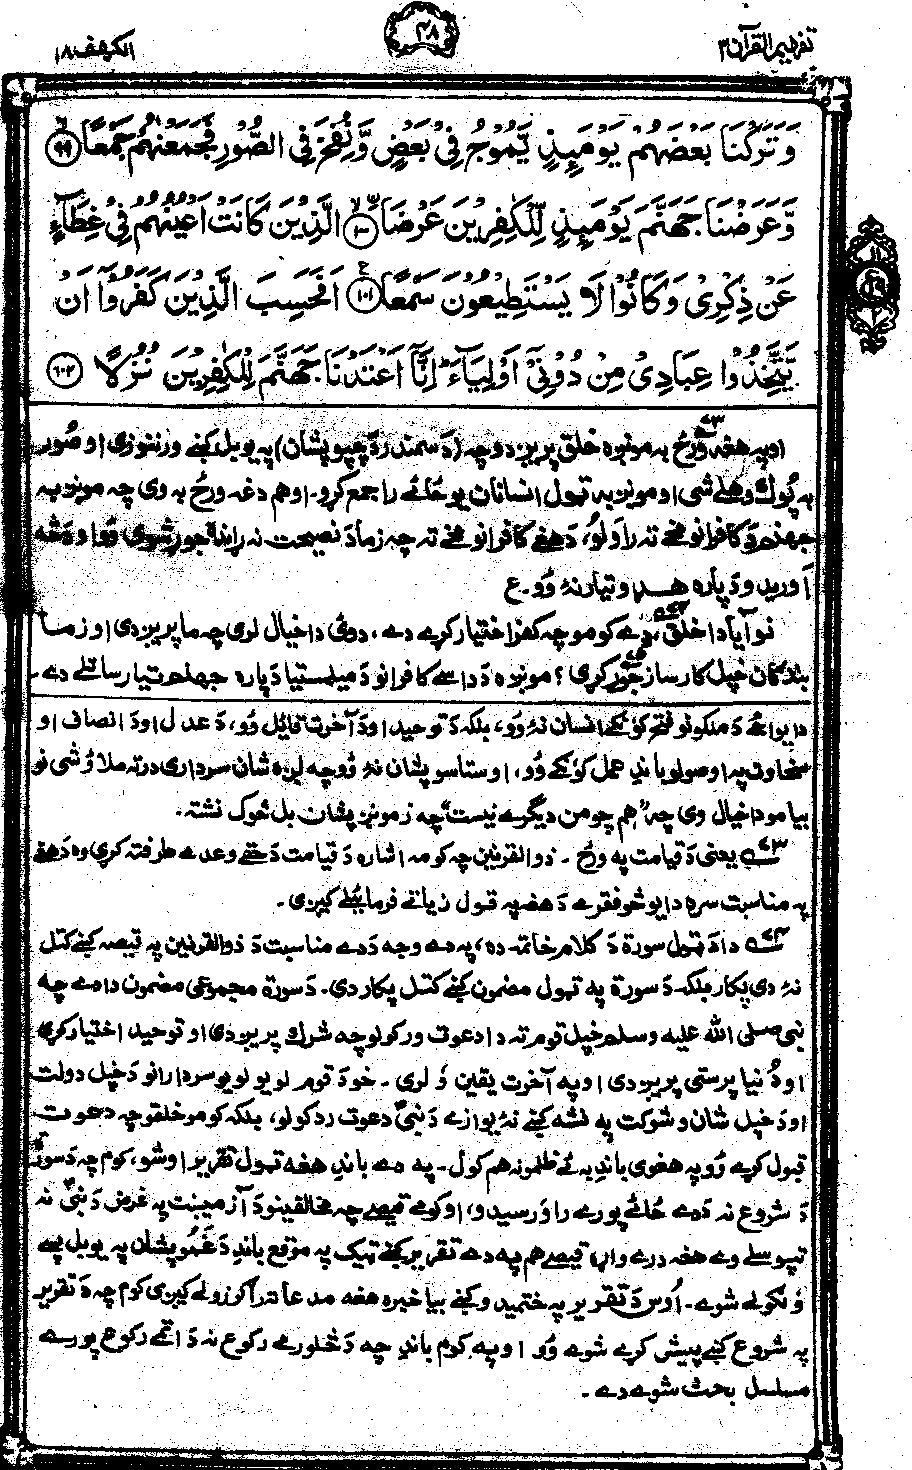 تفہیم القرآن ۳
۴۸
الکہف ۱۸
وَتَرَكْنَا بَعْضَهُمْ يَوْمَئِذٍ يَّمُوْجُ فِيْ بَعْضٍ وَّنُفِخَ فِي الصُّوْرِ فَجَمَعْنٰهُمْ جَمْعًا ۙ﴿۹۹﴾
وَّعَرَضْنَا جَهَنَّمَ يَوْمَئِذٍ لِّلْكٰفِرِيْنَ عَرْضَا ۙ﴿۱۰۰﴾ الَّذِيْنَ كَانَتْ اَعْيُنُهُمْ فِيْ غِطَآءٍ
عَنْ ذِكْرِيْ وَكَانُوْا لَا يَسْتَطِيْعُوْنَ سَمْعًا ﴿۱۰۱﴾ اَفَحَسِبَ الَّذِيْنَ كَفَرُوْٓا اَنْ
يَّتَّخِذُوْا عِبَادِيْ مِنْ دُوْنِيْٓ اَوْلِيَآءَ ؕ اِنَّآ اَعْتَدْنَا جَهَنَّمَ لِلْكٰفِرِيْنَ نُزُلًا ﴿۱۰۲﴾
او په هغه ورځ به مونږه خلق پریږدو چه (دَ سمندر دَ چپو پشان) په یو بل کښے ورننوزی او صُور
به پُوک وهلے شی او مونږ به ټول انسانان یو ځائے را جمع کړو۔ او هم دغه ورځ به وی چه مونږ به
جهنم دَ کافرانو مخے ته راولو، دَ هغے کافرانو مخے ته چه زما دَ نصیحت نه
اَوریدو دَ پاره هډو تیار نۀ وُو۔ ع
نو آیا دا خلق، دے کومو چه کفر اختیار کړے دے، دوئی دا خیال لری چه ما پریږدی او زما
بندګان خپل کارساز جوړ کړی؟ مونږه دَ داسے کافرانو دَ میلمستیا دَ پاره جهنم تیار ساتلے دے۔
دا یواځے دَ ملکونو فتح کوُنکے انسان نۀ وُو، بلکه دَ توحید او دَ آخرت قائل وُو، دَ عدل او دَ انصاف او
سخاوت په اوصولو باندِ عمل کوُنکے وُو، او ستاسو پشان نۀ وُو چه لږه شان سرداری درته ملاؤ شی نو
بیا مو دا خیال وی چه ”هم چو من دیګرے نیست“ چه زمونږ پشان بل څوک نشته۔
یعنی دَ قیامت په ورځ۔ ذوالقرنین چه کومه اشاره دَ قیامت دَ حقے وعدے طرفته کړی وه دَ هغے
په مناسبت سره دا یو څو فقرے دَ هغه په قول زیاتے فرمائیلے کیږی۔
دا دَ ټول سورة دَ کلام خاتمه ده، په دے وجه دَ دے مناسبت دَ ذوالقرنین په قیصه کښے کتل
نۀ دی پکار بلکه دَ سورة په ټول مضمون کښے کتل پکار دی۔ دَ سورة مجموعی مضمون دا دے چه
نبی صلی الله علیه وسلم خپل قوم ته دا دعوت ورکولو چه شرک پریږدی او توحید اختیار کړی
او دُنیا پرستی پریږدی او په آخرت یقین وُ لری۔ خو دَ قوم لویو لویو سردارانو دَ خپل دولت
او دَ خپل شان و شوکت په نشه کښے نۀ یوازے دَ نبیؐ دعوت رد کولو، بلکه کومو خلقو چه دعوت
قبول کړے وُو په هغوی باندِ به ئے ظلمونه هم کول۔ په دے باندِ هغه ټول تقریر اوشو، کوم چه دَ سورة
دَ شروع نه دَ دے ځائے پورے را وُرسیدو، او کومے قیصے چه مخالفینو دَ آزمیښت په غرض دَ نبیؐ نه
تپوسلے وے هغه درے واړه قیصے هم په دے تقریر کښے ټهیک په موقع باندِ دَ غَمُو پشان په یو بل پسے
وُ ټکولے شوے۔ اُوس دَ تقریر په ختمیدو کښے بیا خبره هغه مدعا ته راګرزولے کیږی کوم چه دَ تقریر
په شروع کښے پیش کړے شوے وُو او په کوم باندِ چه دَ څلورمے رکوع نه دَ اتمے رکوع پورے
مسلسل بحث شوے دے۔